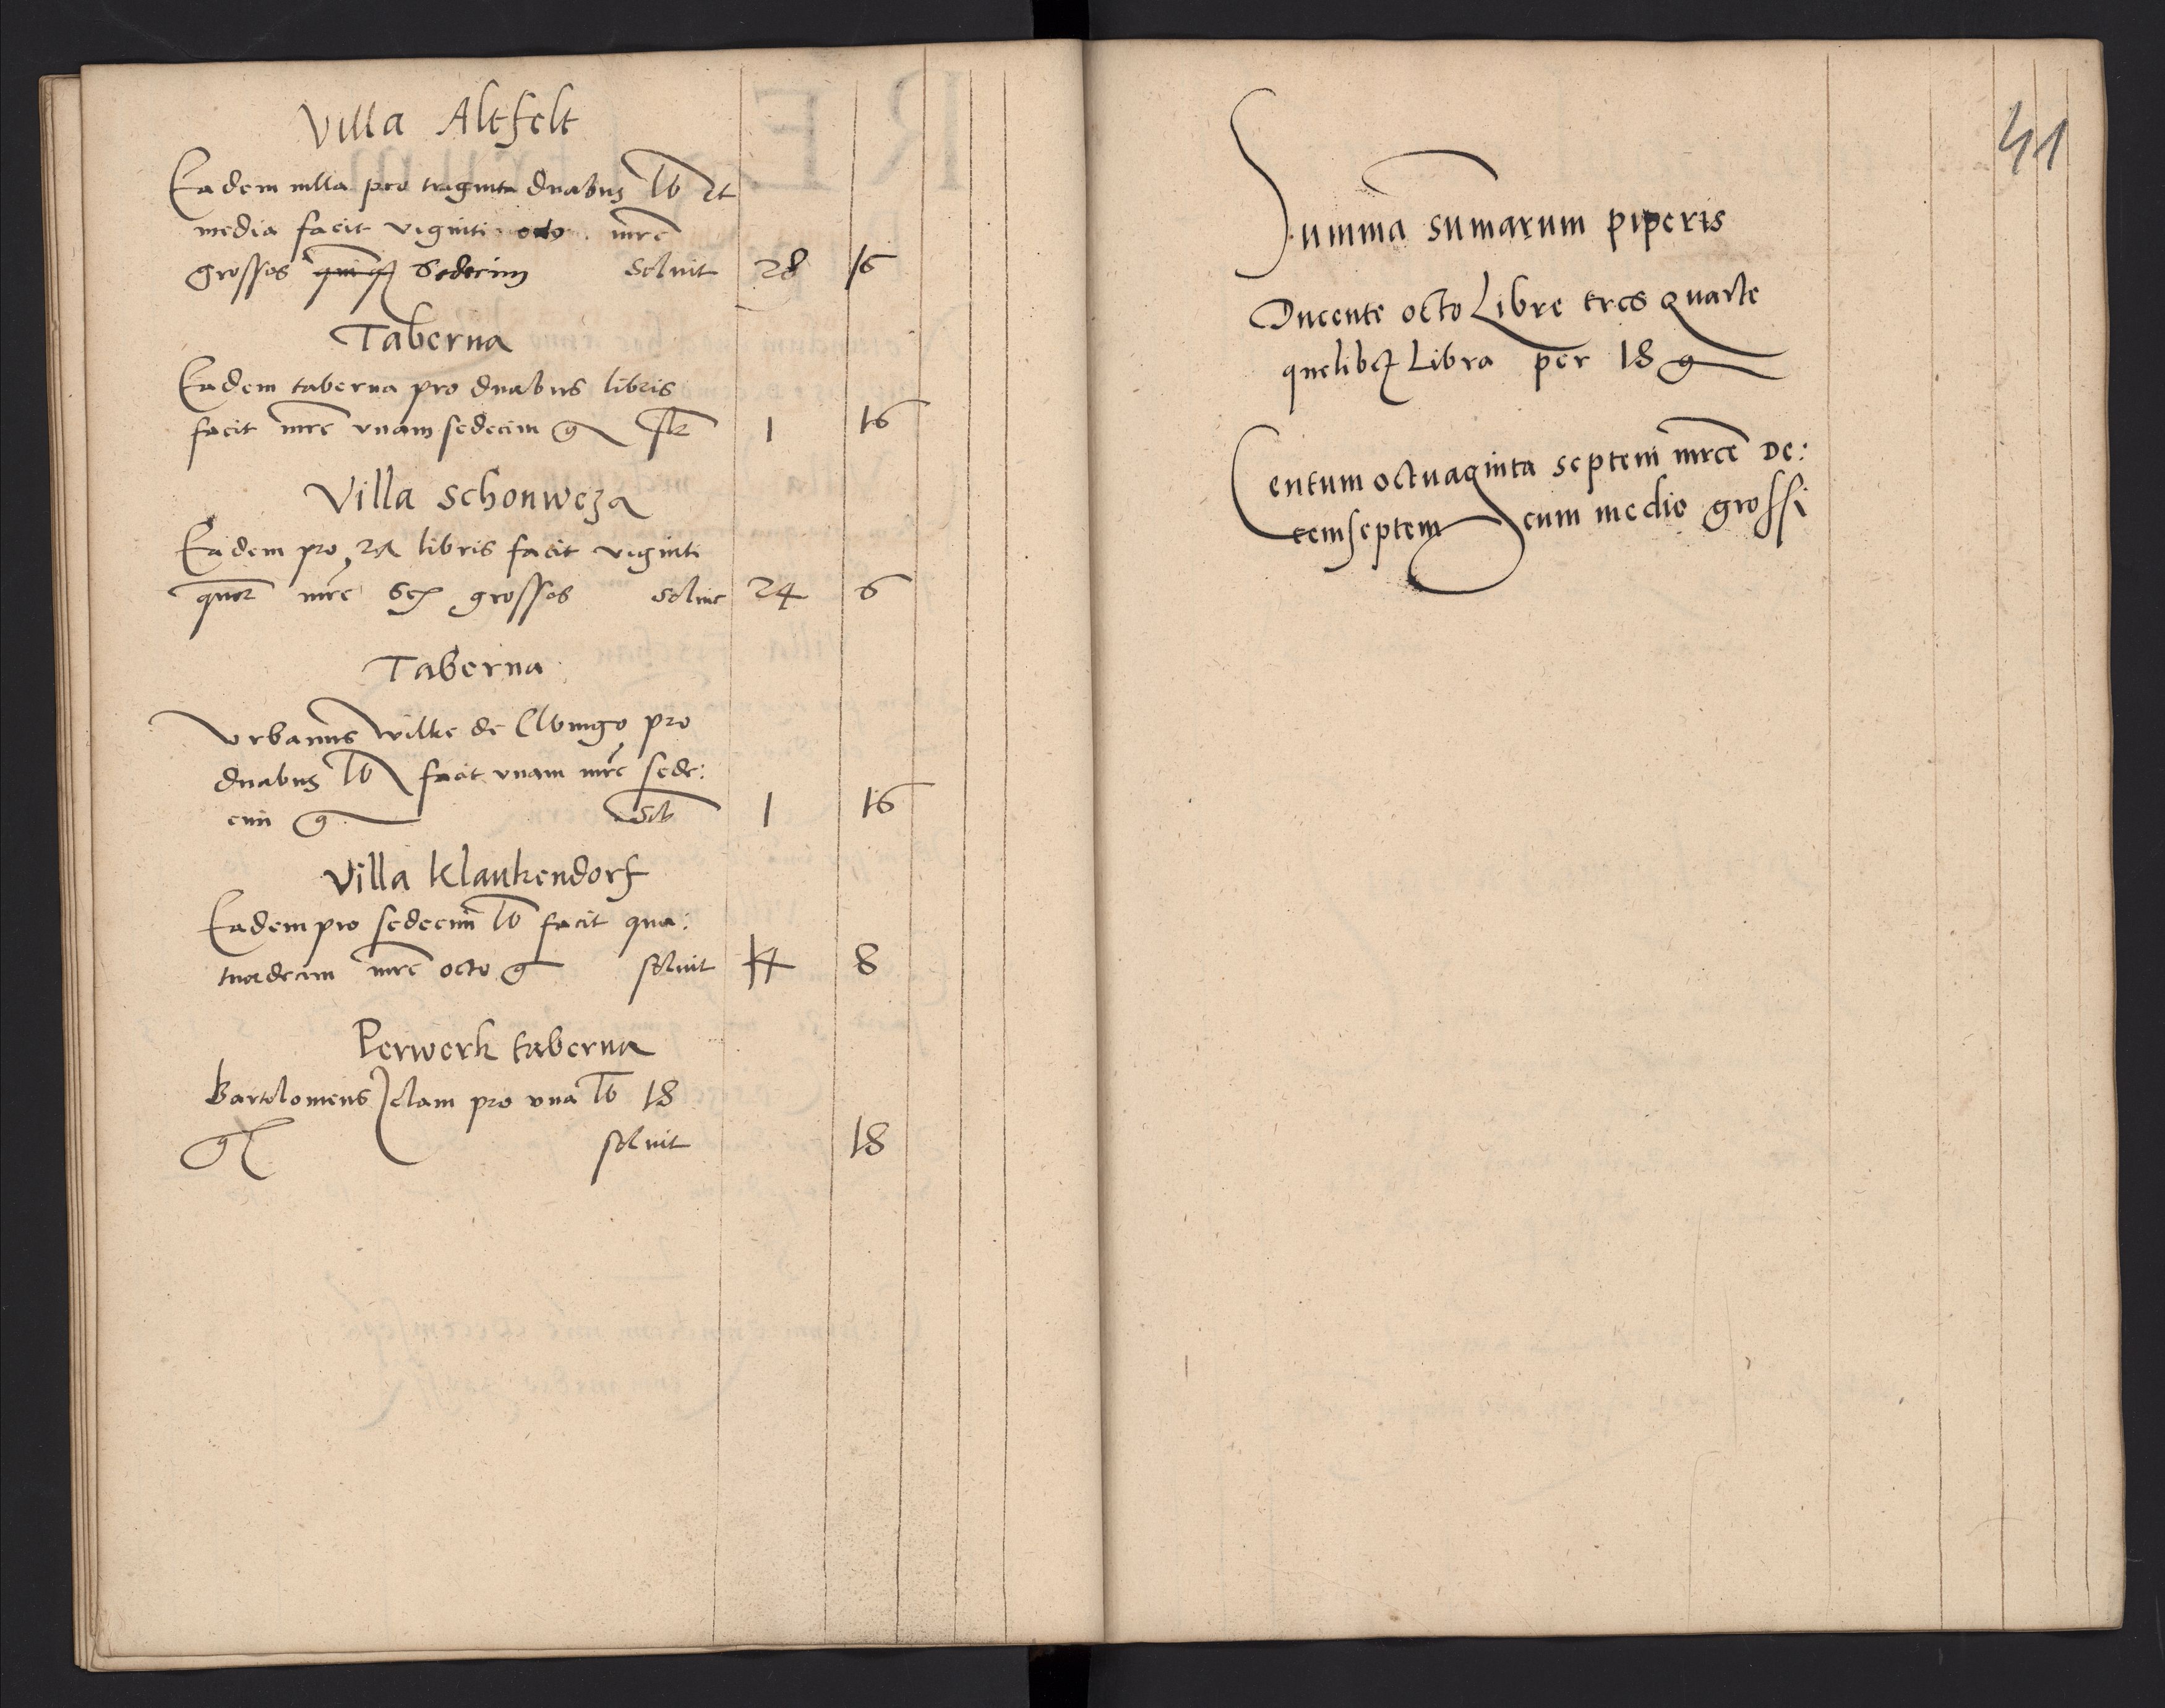 Villa Altfelt
Eadem villa pro triginta duabus lb et
media facit viginti octo mrc
grossos quinq sedecim soluit 28 16
Taberna
Eadem taberna pro duabus libris
facit mrc vnam sedecim g 1 16
Villa schonweza
Eadem pro libris facit viginti
quor mrc sex grossos soluit 24 6
Taberna
Vrbanus wilke de Elbingo pro
duabus lb facit vnam mrc sede:
cim g sol 1 16
Villa klaukendorf
Eadem pro sedecim lb facit qua:
tuordecim mrc octo g soluit 14 8
Perwerk taberna
Bartolomeus Jolam pro vna lb 18
g soluit 18
41
Summa sumarum piperis
Ducente octo Libre tres quarte
quelibet Libra per 18 g
Centum octuaginta septem mrce De:
cemseptem cum medio grossi